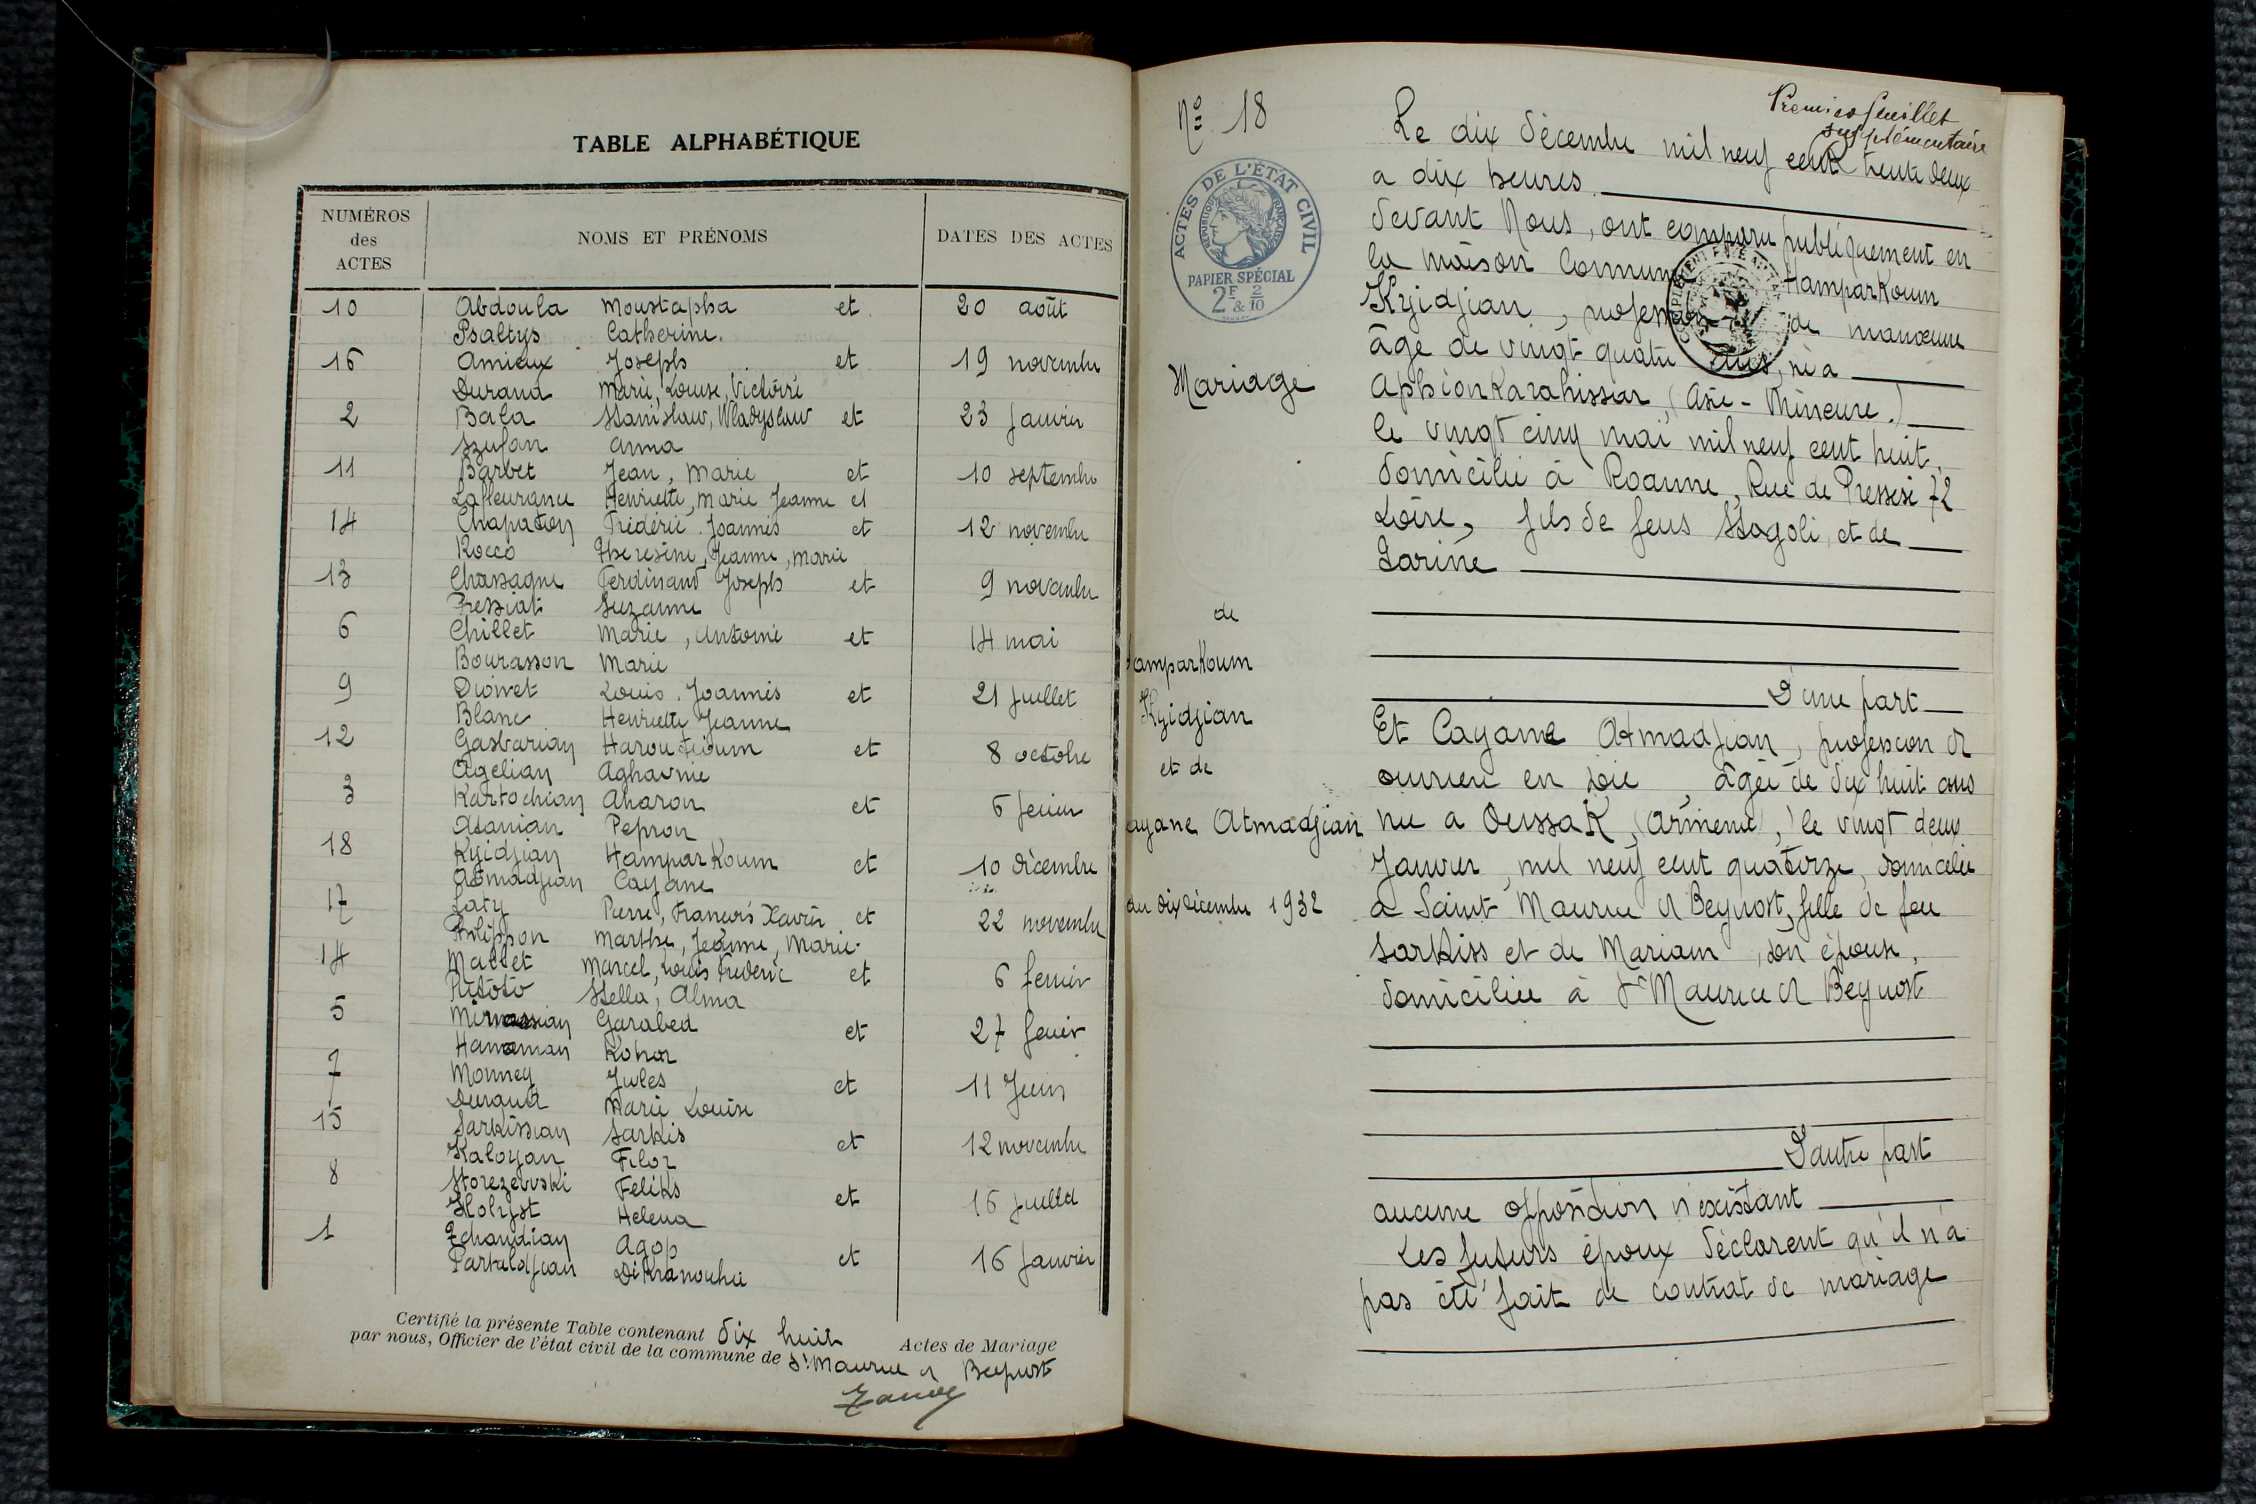 TABLE ALPHABÉTIQUE
NUMÉROS des ACTES
NOMS ET PRÉNOMS
DATES DES ACTES
10 Abdoula Moustapha et 20 août
Psaltys Catherine.
16 Amieux Joseph et 19 novembre
Durand Marie, Louise, Victoire
2 Bala Stanislaw, Wladyslaw et 23 Janvier
Szufan Anna
11 Barbet Jean, Marie et 10 septembre
Henriette, Marie Jeanne et
14 Chapaton Frédéric Joannès et 12 novembre
Rocco Theresine, Jeanne, Marie
13 Chassagne Ferdinand Joseph et 9 novembre
Pressiat Suzanne
6 Chillet Marie, Antoine et 14 mai
Bourasson Marie
9 Louis Joannès et 21 Juillet
Blanc Henriette Jeanne
12 Gasbarian Haroutioum et 8 octobre
Agelian Aghavnie
3 Kartochian Aharon et 6 fevier
Atanian Pepron
18 Kyidjian Hamparkoum et 10 décembre
Atmadjian Cayane
17 Laty Pierre, François Xavier et 22 novembre
Philippon Marthe, Jeanne, Marie
14 Mallet Marcel, Louis Frederic et 6 fevrier
Stella, Alma
5 Garabed et 27 fevier
Kohar
7 Monney Jules et 11 Juin
Durand Marie Louise
15 Sarkissian Sarkis et 12 novembre
Kaloyan Filor
8 Storezewski Feliks et 16 Juillet
Holyst Helena
1 Tchandian Agop et 16 Janvier
Dikranouhie
Certifié la présente Table contenant dix huit Actes de Mariage
par nous, Officier de l'état civil de la commune de St Maurice d Beynost
Premier feuillet
supplémentaire
N° 18
ACTES DE L'ÉTAT CIVIL
RÉPUBLIQUE FRANÇAISE
PAPIER SPÉCIAL
2F & 2/10
Mariage
de
Hamparkoum
Kyidjian
et de
Cayane Atmadjian
du dix décembre 1932
Le dix décembre mil neuf cent trente deux
a dix heures
devant Nous, ont comparu publiquement en
la maison Commune Hamparkoum
Kyidjian, profession de manœuvre
âgé de vingt quatre ans, né a
Aphionkarahissar, (Asie-Mineure.)
le vingt cinq mai mil neuf cent huit.
domicilié à Roanne, Rue de Pressese 72
Loire, fils de feus Stogoli, et de
Zarine
D'une part
Et Cayane Atmadjian, profession d
ouvriere en soie, âgée de dix huit ans
née a OussaK, (Armenie), le vingt deux
Janvier, mil neuf cent quatorze, domiciliée
a Saint Maurice d Beynost, fille de feu
Sarkiss et de Mariam, son épouse,
domiciliée à St Maurice d Beynost
D'autre part
aucune opposition n'existant
Les futurs époux déclarent qu'il n'a
pas été fait de contrat de mariage